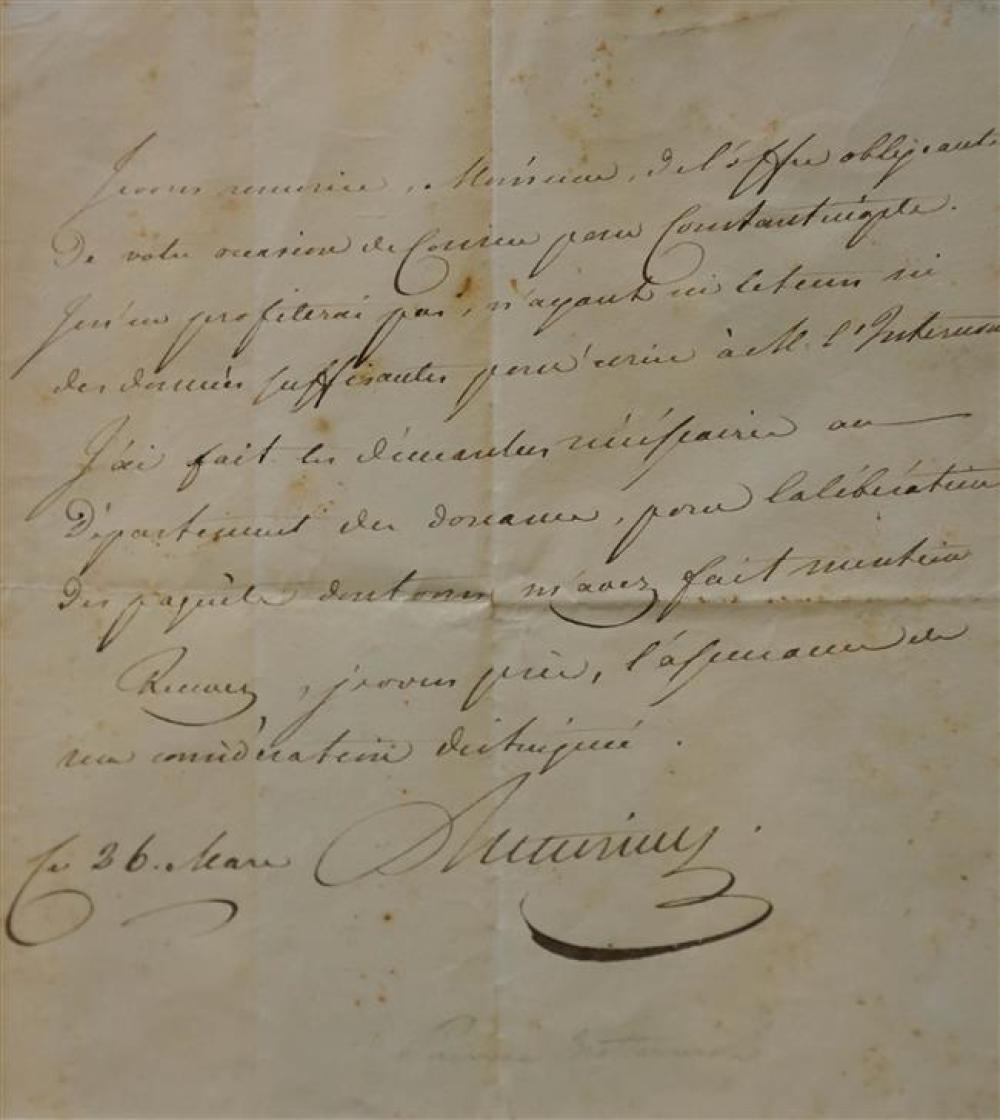 Je vous remercie, Monsieur, de l'offre obligeante
de votre occasion de Courier pour Constantinople.
Je n'en profiterai pas, n'ayant ni le tems ni
des données suffisantes pour écrire à M. l'Internon
J'ai fait les démandes nécéssaires au
Département des douanes, pour la libération
des paquèts dont vous m'avez fait mention
Recevez, je vous prie, l'assurance de
ma considération distinguée.
Ce 26. Mars Metternich